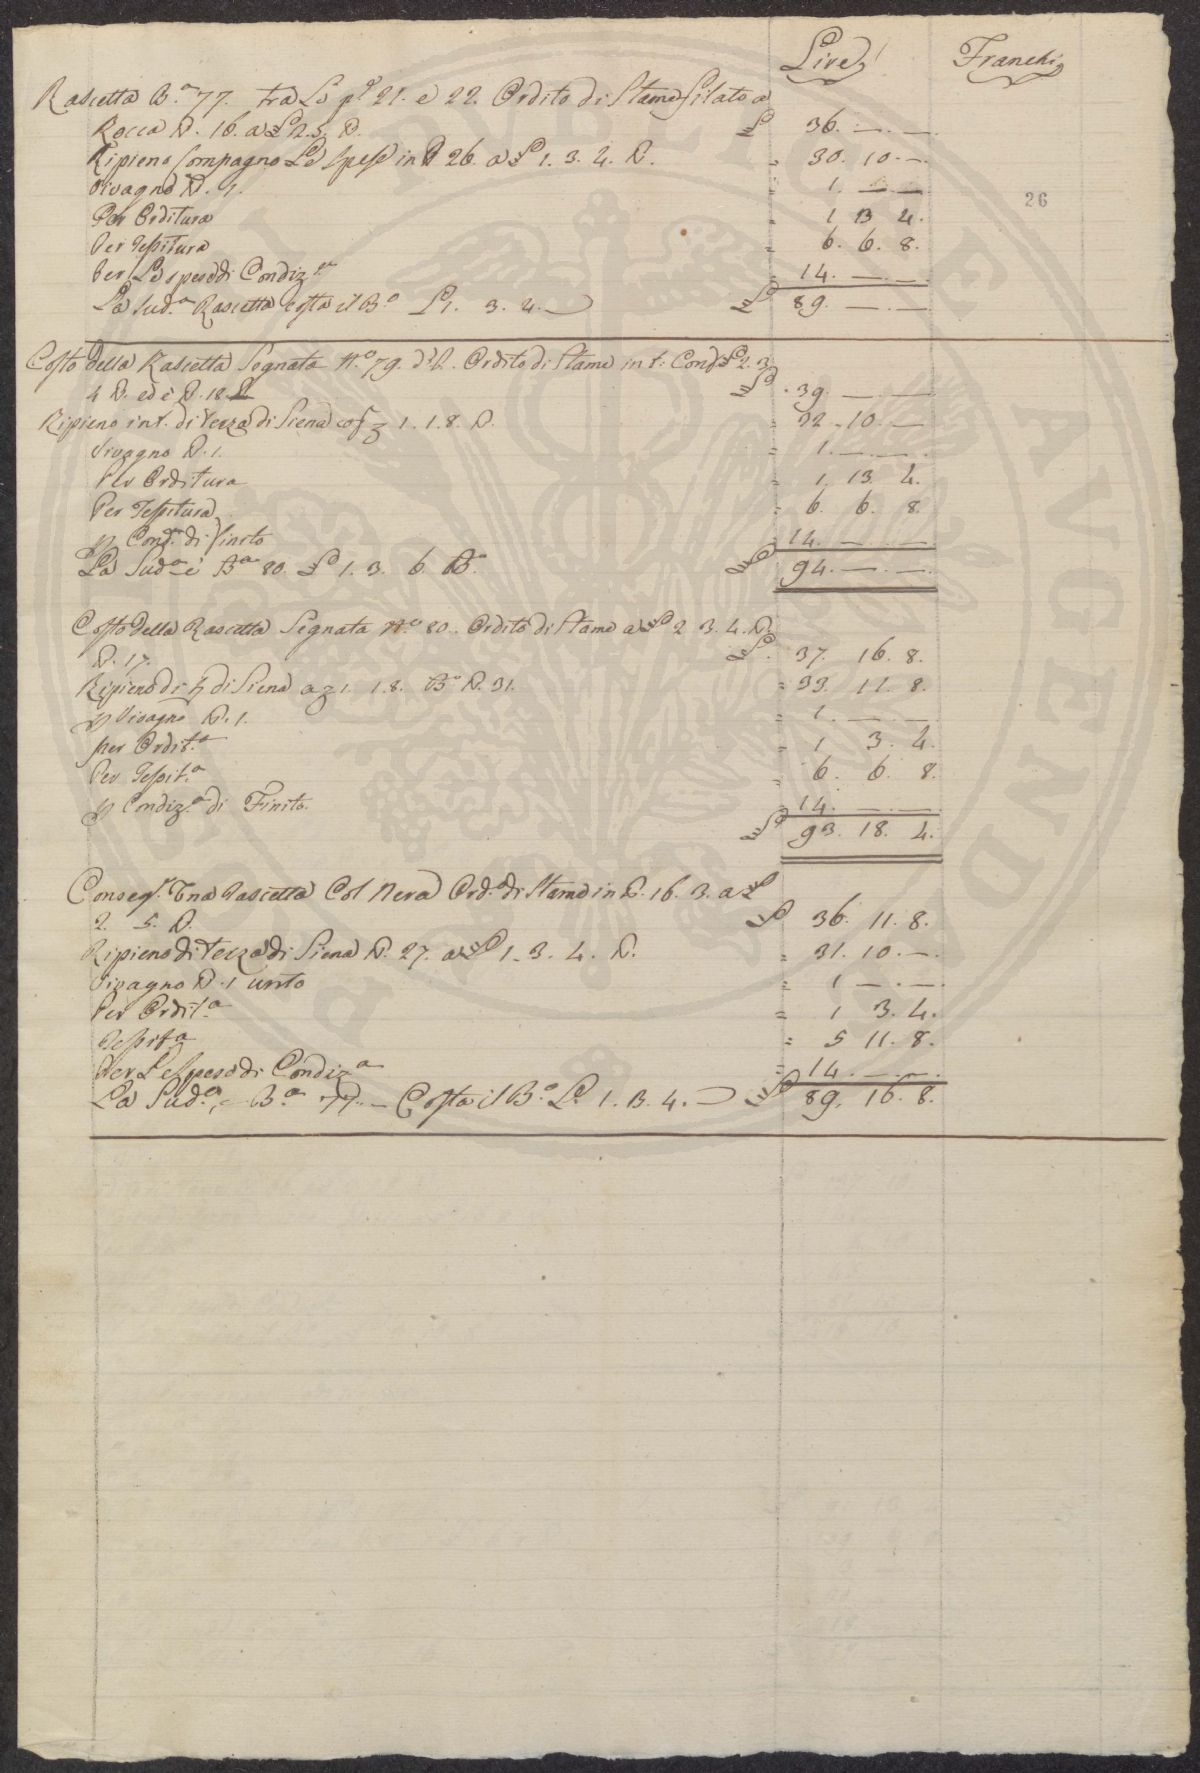 Lire Franchi
Rascetta B.ª 77. tra Le pª 21. e 22. Ordito di Stame filato a
Rocca ℔. 16. a £ 2. 5. ℔. £ 36. — . —
Ripieno Compagno Le Spese in ℔ 26 a £ 1. 3. 4. ℔. = 30. 10. —
Vivagno ℔. 1. = 1. — —
26
Per Orditura = 1 13 4.
Per Tessitura = 6. 6. 8.
Per Le spese di Condiz.ª = 14. — . —
La Sud.ª Rascetta costa il B.º £ 1. 3. 2. — £ 89. — . —
Costo della Rascetta Segnata N.º 79. Ordito di Stame in t: Cond £ 2. 3
4 ℔. ed è ℔. 18 £ 39. — —
Ripieno in t. di terza di Siena 1. 1. 8. ℔. = 32 . 10. —
Vivagno ℔. 1. = 1. — . —
Per Orditura = 1. 13. 4.
Per Tessitura = 6. 6. 8
℘ Cond.ª di finito 14. — —
La Sud.ª è B.ª 80. £ 1. 3. 6. B.º £ 94. — . —
Costo della Rascetta Segnata N.º 80.. Ordito di Stame a £ 2 3. 4. ℔
℔. 17. £ 37. 16. 8.
Ripieno di di Siena a 1. 1. 8. B.º ℔. 31. = 33. 11. 8.
℘ Vivagno ℔. 1. = 1. — . —
per Ordit.ª = 1 3. 4.
Per Tessit.ª = 6. 6. 8.
℘ Condiz.ª di Finito. = 14. — . —
£ 93. 18. 4.
Conseg.ª Una Rascetta Col Nera Ord.º di Stame in ℔. 16. 3. a £
2. 5. ℔. £ 36. 11. 8.
Ripieno di terza di Siena ℔. 27. a £ 1. 3. 4. ℔. = 31. 10. —
Vivagno ℔. 1 unto = 1 — . —
Per Ordit.ª = 1 3. 4.
Tessit.ª = 5 11. 8.
Per Le Spese di Condiz.ª = 14. — . —
La Sud.ª, — B.ª 77. — Costa il B.º £. 1. 13. 4. — £ 89. 16. 8.